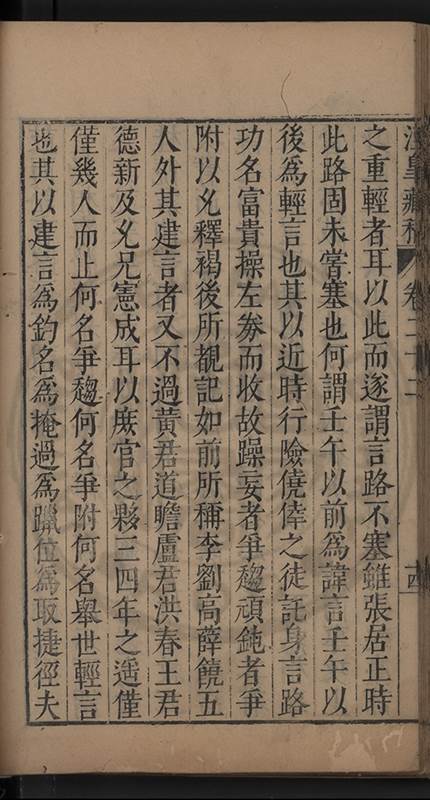 涇皋藏稿 卷二十二 四
之重輕者耳以此而遂謂言路不塞雖張居正時
此路固未嘗塞也何謂壬午以前為諱言壬午以
後為輕言也其以近時行險僥倖之徒託身言路
功名富貴操左劵而收故躁妄者爭趨頑鈍者爭
附以允釋褐後所覩記如前所稱李劉高薛饒五
人外其建言者又不過黃君道瞻盧君洪春王君
德新及允兄憲成耳以庶官之夥三四年之遥僅
僅幾人而止何名爭趨何名爭附何名舉世輕言
也其以建言為釣名為掩過為躐位為取捷徑夫